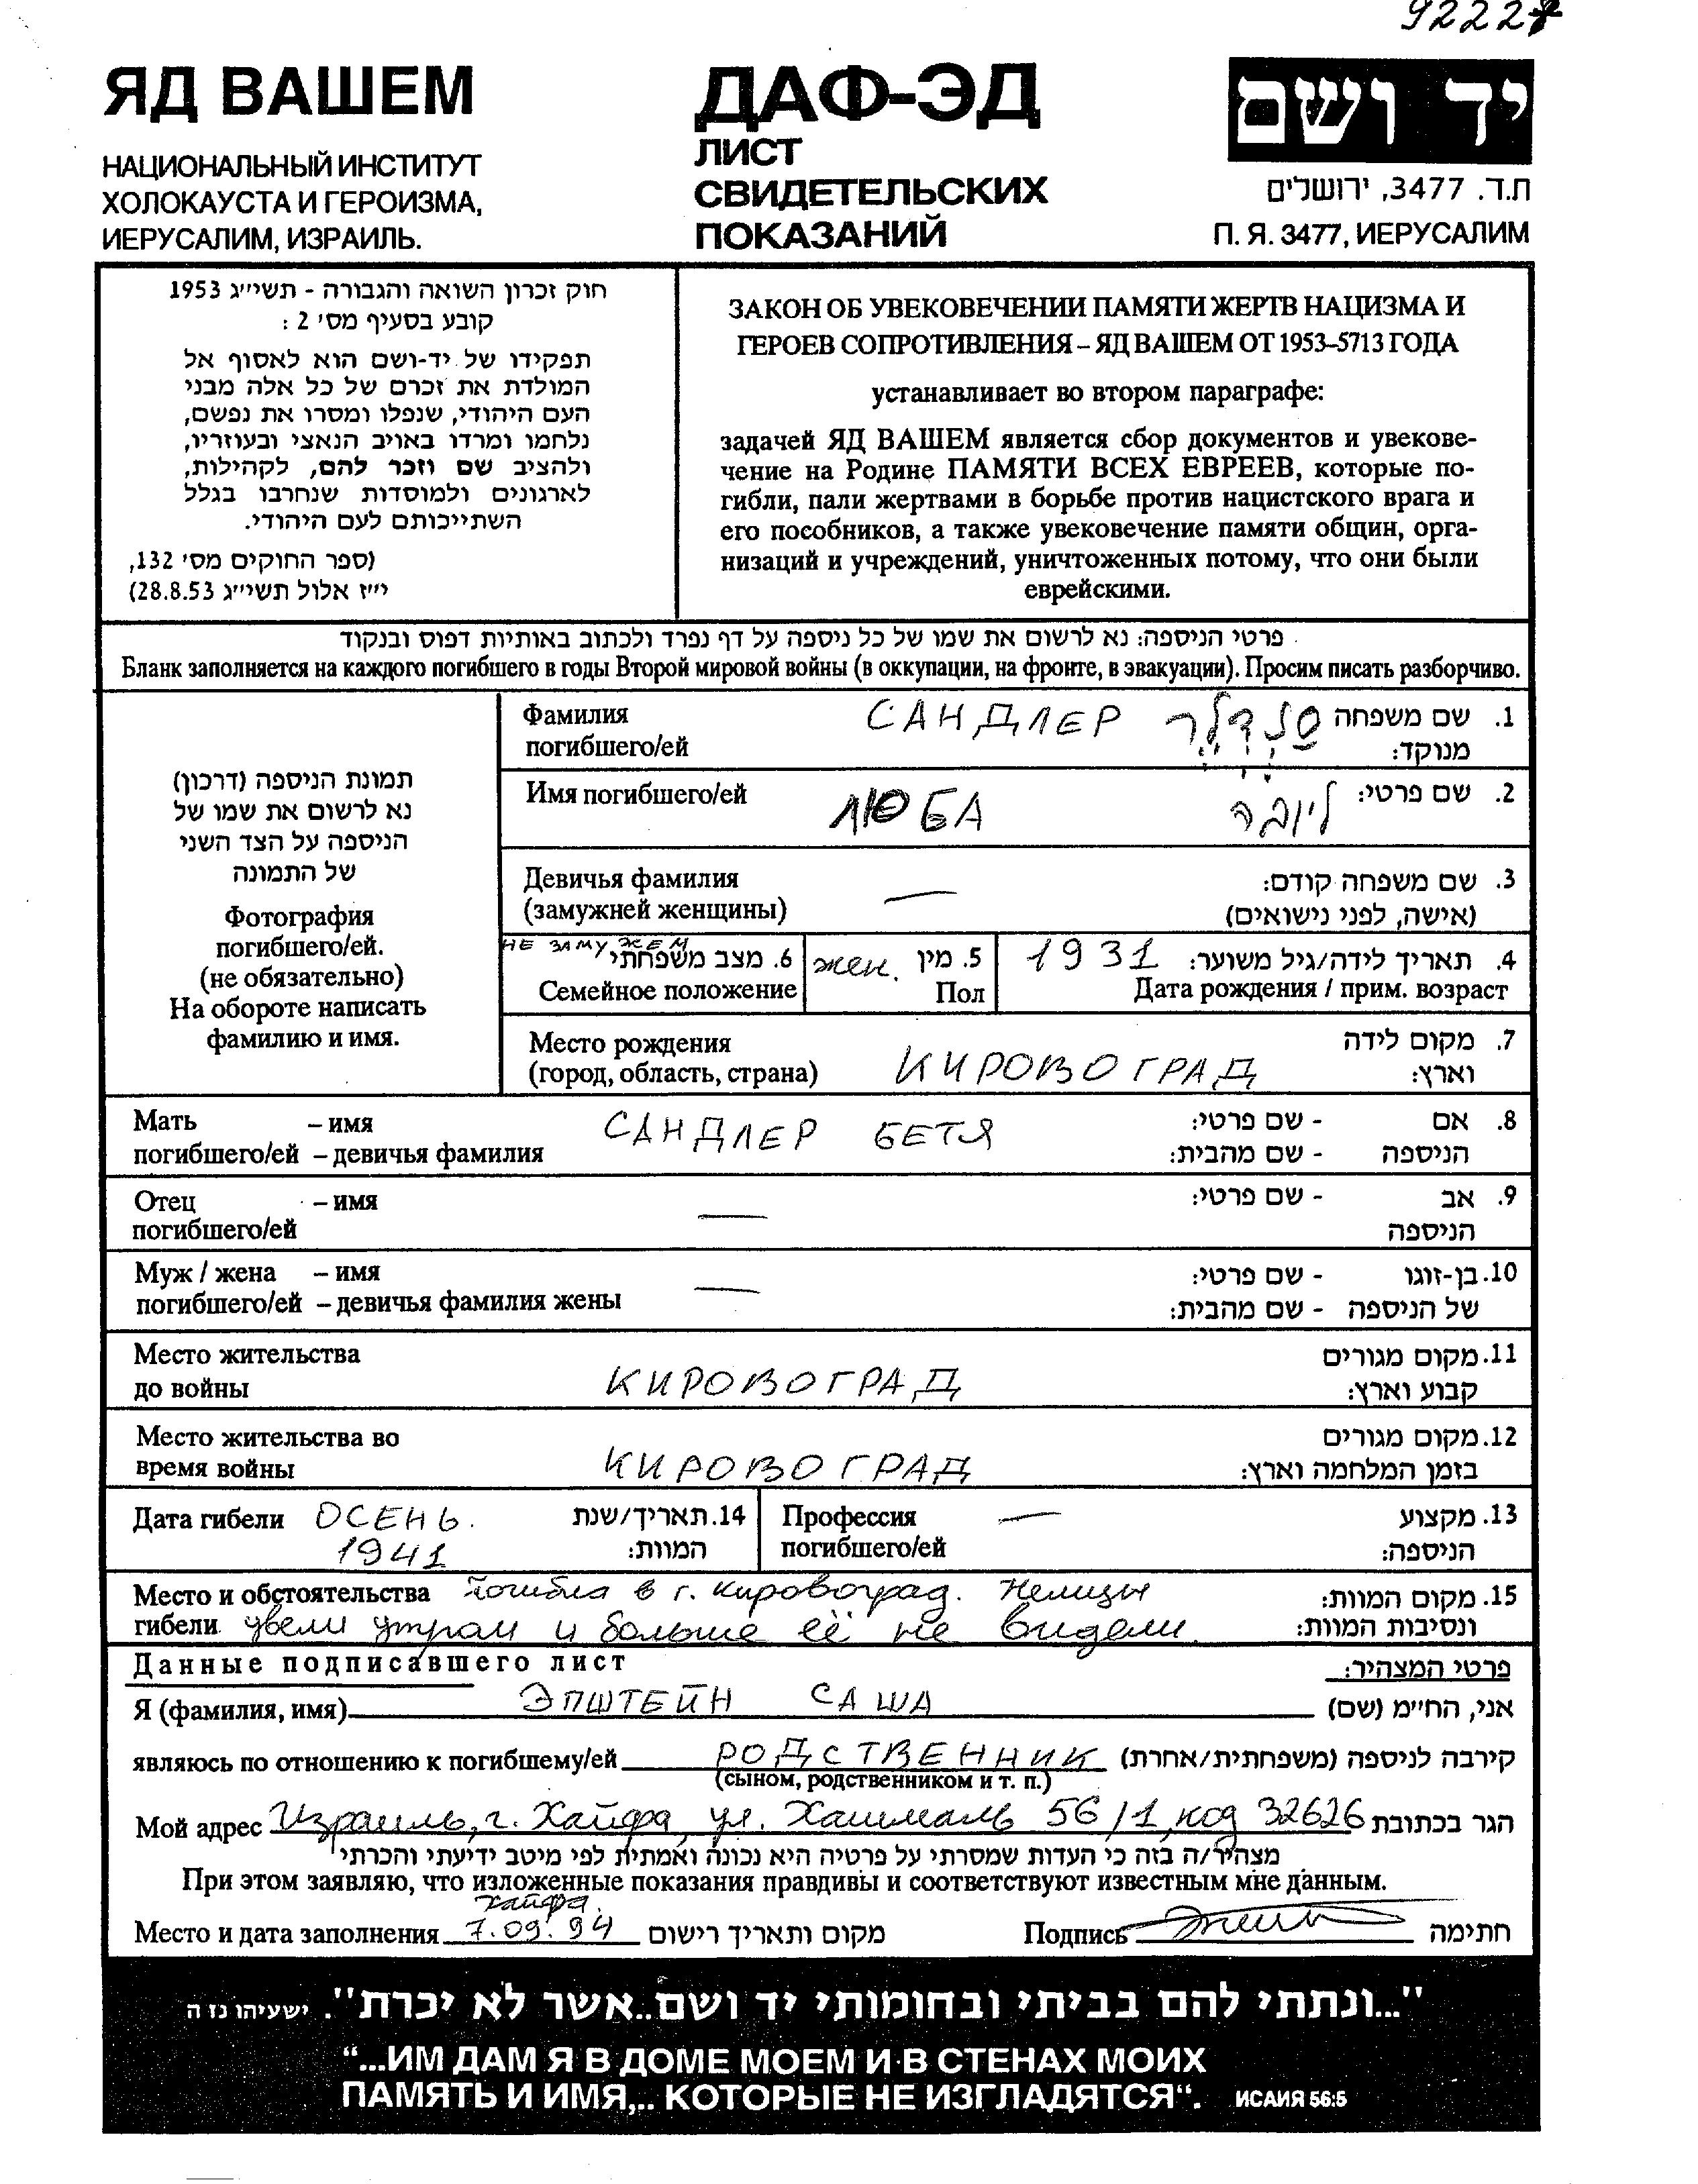 92227
ЯД ВАШЕМ
НАЦИОНАЛЬНЫЙ ИНСТИТУТ
ХОЛОКАУСТА И ГЕРОИЗМА,
ИЕРУСАЛИМ, ИЗРАИЛЬ.
ДАФ-ЭД
ЛИСТ
СВИДЕТЕЛЬСКИХ
ПОКАЗАНИЙ
יד ושם
ת.ד. 3477, ירושלים
П. Я. 3477, ИЕРУСАЛИМ
חוק זכרון השואה והגבורה - תשי״ג 1953
קובע בסעיף מס׳ 2 :
תפקידו של יד-ושם הוא לאסוף אל
המולדת את זכרם של כל אלה מבני
העם היהודי, שנפלו ומסרו את נפשם,
נלחמו ומרדו באויב הנאצי ובעוזריו,
ולהציב שם וזכר להם, לקהילות,
לארגונים ולמוסדות שנחרבו בגלל
השתייכותם לעם היהודי.
(ספר החוקים מס׳ 132,
י״ז אלול תשי״ג 28.8.53)
ЗАКОН ОБ УВЕКОВЕЧЕНИИ ПАМЯТИ ЖЕРТВ НАЦИЗМА И
ГЕРОЕВ СОПРОТИВЛЕНИЯ – ЯД ВАШЕМ ОТ 1953–5713 ГОДА
устанавливает во втором параграфе:
задачей ЯД ВАШЕМ является сбор документов и увекове-
чение на Родине ПАМЯТИ ВСЕХ ЕВРЕЕВ, которые по-
гибли, пали жертвами в борьбе против нацистского врага и
его пособников, а также увековечение памяти общин, орга-
низаций и учреждений, уничтоженных потому, что они были
еврейскими.
פרטי הניספה: נא לרשום את שמו של כל ניספה על דף נפרד ולכתוב באותיות דפוס ובנקוד
Бланк заполняется на каждого погибшего в годы Второй мировой войны (в оккупации, на фронте, в эвакуации). Просим писать разборчиво.
תמונת הניספה (דרכון)
נא לרשום את שמו של
הניספה על הצד השני
של התמונה
Фотография
погибшего/ей.
(не обязательно)
На обороте написать
фамилию и имя.
Фамилия САНДЛЕР סנדלר 1. שם משפחה
погибшего/ей מנוקד:
Имя погибшего/ей ЛЮБА ליובה 2. שם פרטי:
Девичья фамилия — 3. שם משפחה קודם:
(замужней женщины) (אישה, לפני נישואים)
НЕ ЗАМУЖЕМ 6. מצב משפחתי жен. 5. מין 1931 4. תאריך לידה/גיל משוער:
Семейное положение Пол Дата рождения / прим. возраст
Место рождения 7. מקום לידה
(город, область, страна) КИРОВОГРАД וארץ:
Мать – имя САНДЛЕР БЕТЯ - שם פרטי: 8. אם
погибшего/ей – девичья фамилия - שם מהבית: הניספה
Отец – имя — - שם פרטי: 9. אב
погибшего/ей הניספה
Муж / жена – имя — - שם פרטי: 10. בן-זוגו
погибшего/ей – девичья фамилия жены - שם מהבית: של הניספה
Место жительства 11. מקום מגורים
до войны КИРОВОГРАД קבוע וארץ:
Место жительства во 12. מקום מגורים
время войны КИРОВОГРАД בזמן המלחמה וארץ:
Дата гибели ОСЕНЬ. 14. תאריך/שנת Профессия — 13. מקצוע
1941 המוות: погибшего/ей הניספה:
Место и обстоятельства Погибла в г. Кировоград. Немцы 15. מקום המוות:
гибели увели утром и больше её не видели. ונסיבות המוות:
Данные подписавшего лист פרטי המצהיר:
Я (фамилия, имя) ЭПШТЕЙН САША אני, החי״מ (שם)
являюсь по отношению к погибшему/ей РОДСТВЕННИК קירבה לניספה (משפחתית/אחרת)
(сыном, родственником и т. п.)
Мой адрес Израиль, г. Хайфа, ул. Хашмаль 56/1, код 32626 הגר בכתובת
מצהיר/ה בזה כי העדות שמסרתי על פרטיה היא נכונה ואמתית לפי מיטב ידיעתי והכרתי
При этом заявляю, что изложенные показания правдивы и соответствуют известным мне данным.
Хайфа.
Место и дата заполнения 7.09.94 מקום ותאריך רישום Подпись חתימה
"...ונתתי להם בביתי ובחומותי יד ושם..אשר לא יכרת". ישעיהו נז ה
“...ИМ ДАМ Я В ДОМЕ МОЕМ И В СТЕНАХ МОИХ
ПАМЯТЬ И ИМЯ,.. КОТОРЫЕ НЕ ИЗГЛАДЯТСЯ“. ИСАИЯ 56:5